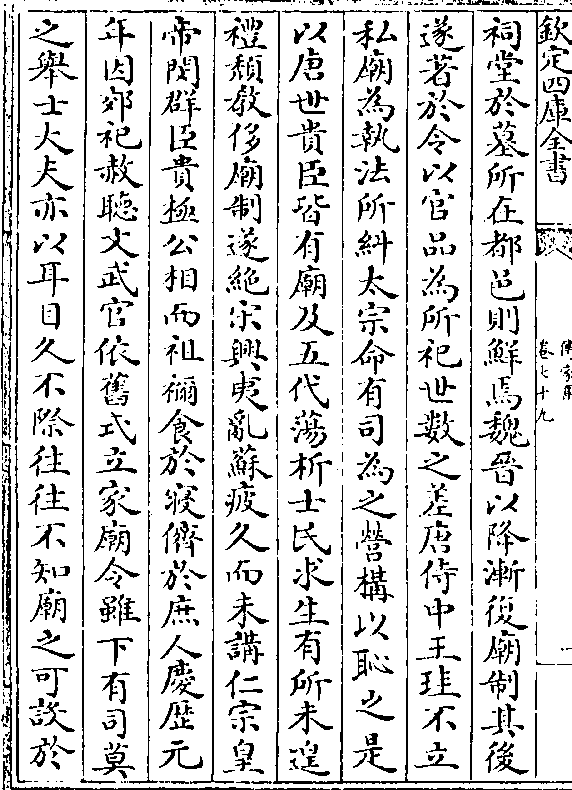 欽定四庫全書
傳家集
卷七十九
祠堂於墓所在都邑則鮮焉魏晉以降漸復廟制其後
遂著於令以官品為所祀世數之差唐侍中王珪不立
私廟為執法所糾太宗命有司為之營構以恥之是
以唐世貴臣皆有廟及五代蕩析士民求生有所未遑
禮頽教侈廟制遂絶宋興夷亂蘇疲久而未講仁宗皇
帝閔群臣貴極公相而祖禰食於寢儕於庶人慶歴元
年因郊祀赦聽文武官依舊式立家廟令雖下有司莫
之舉士大夫亦以耳目久不際往往不知廟之可設於